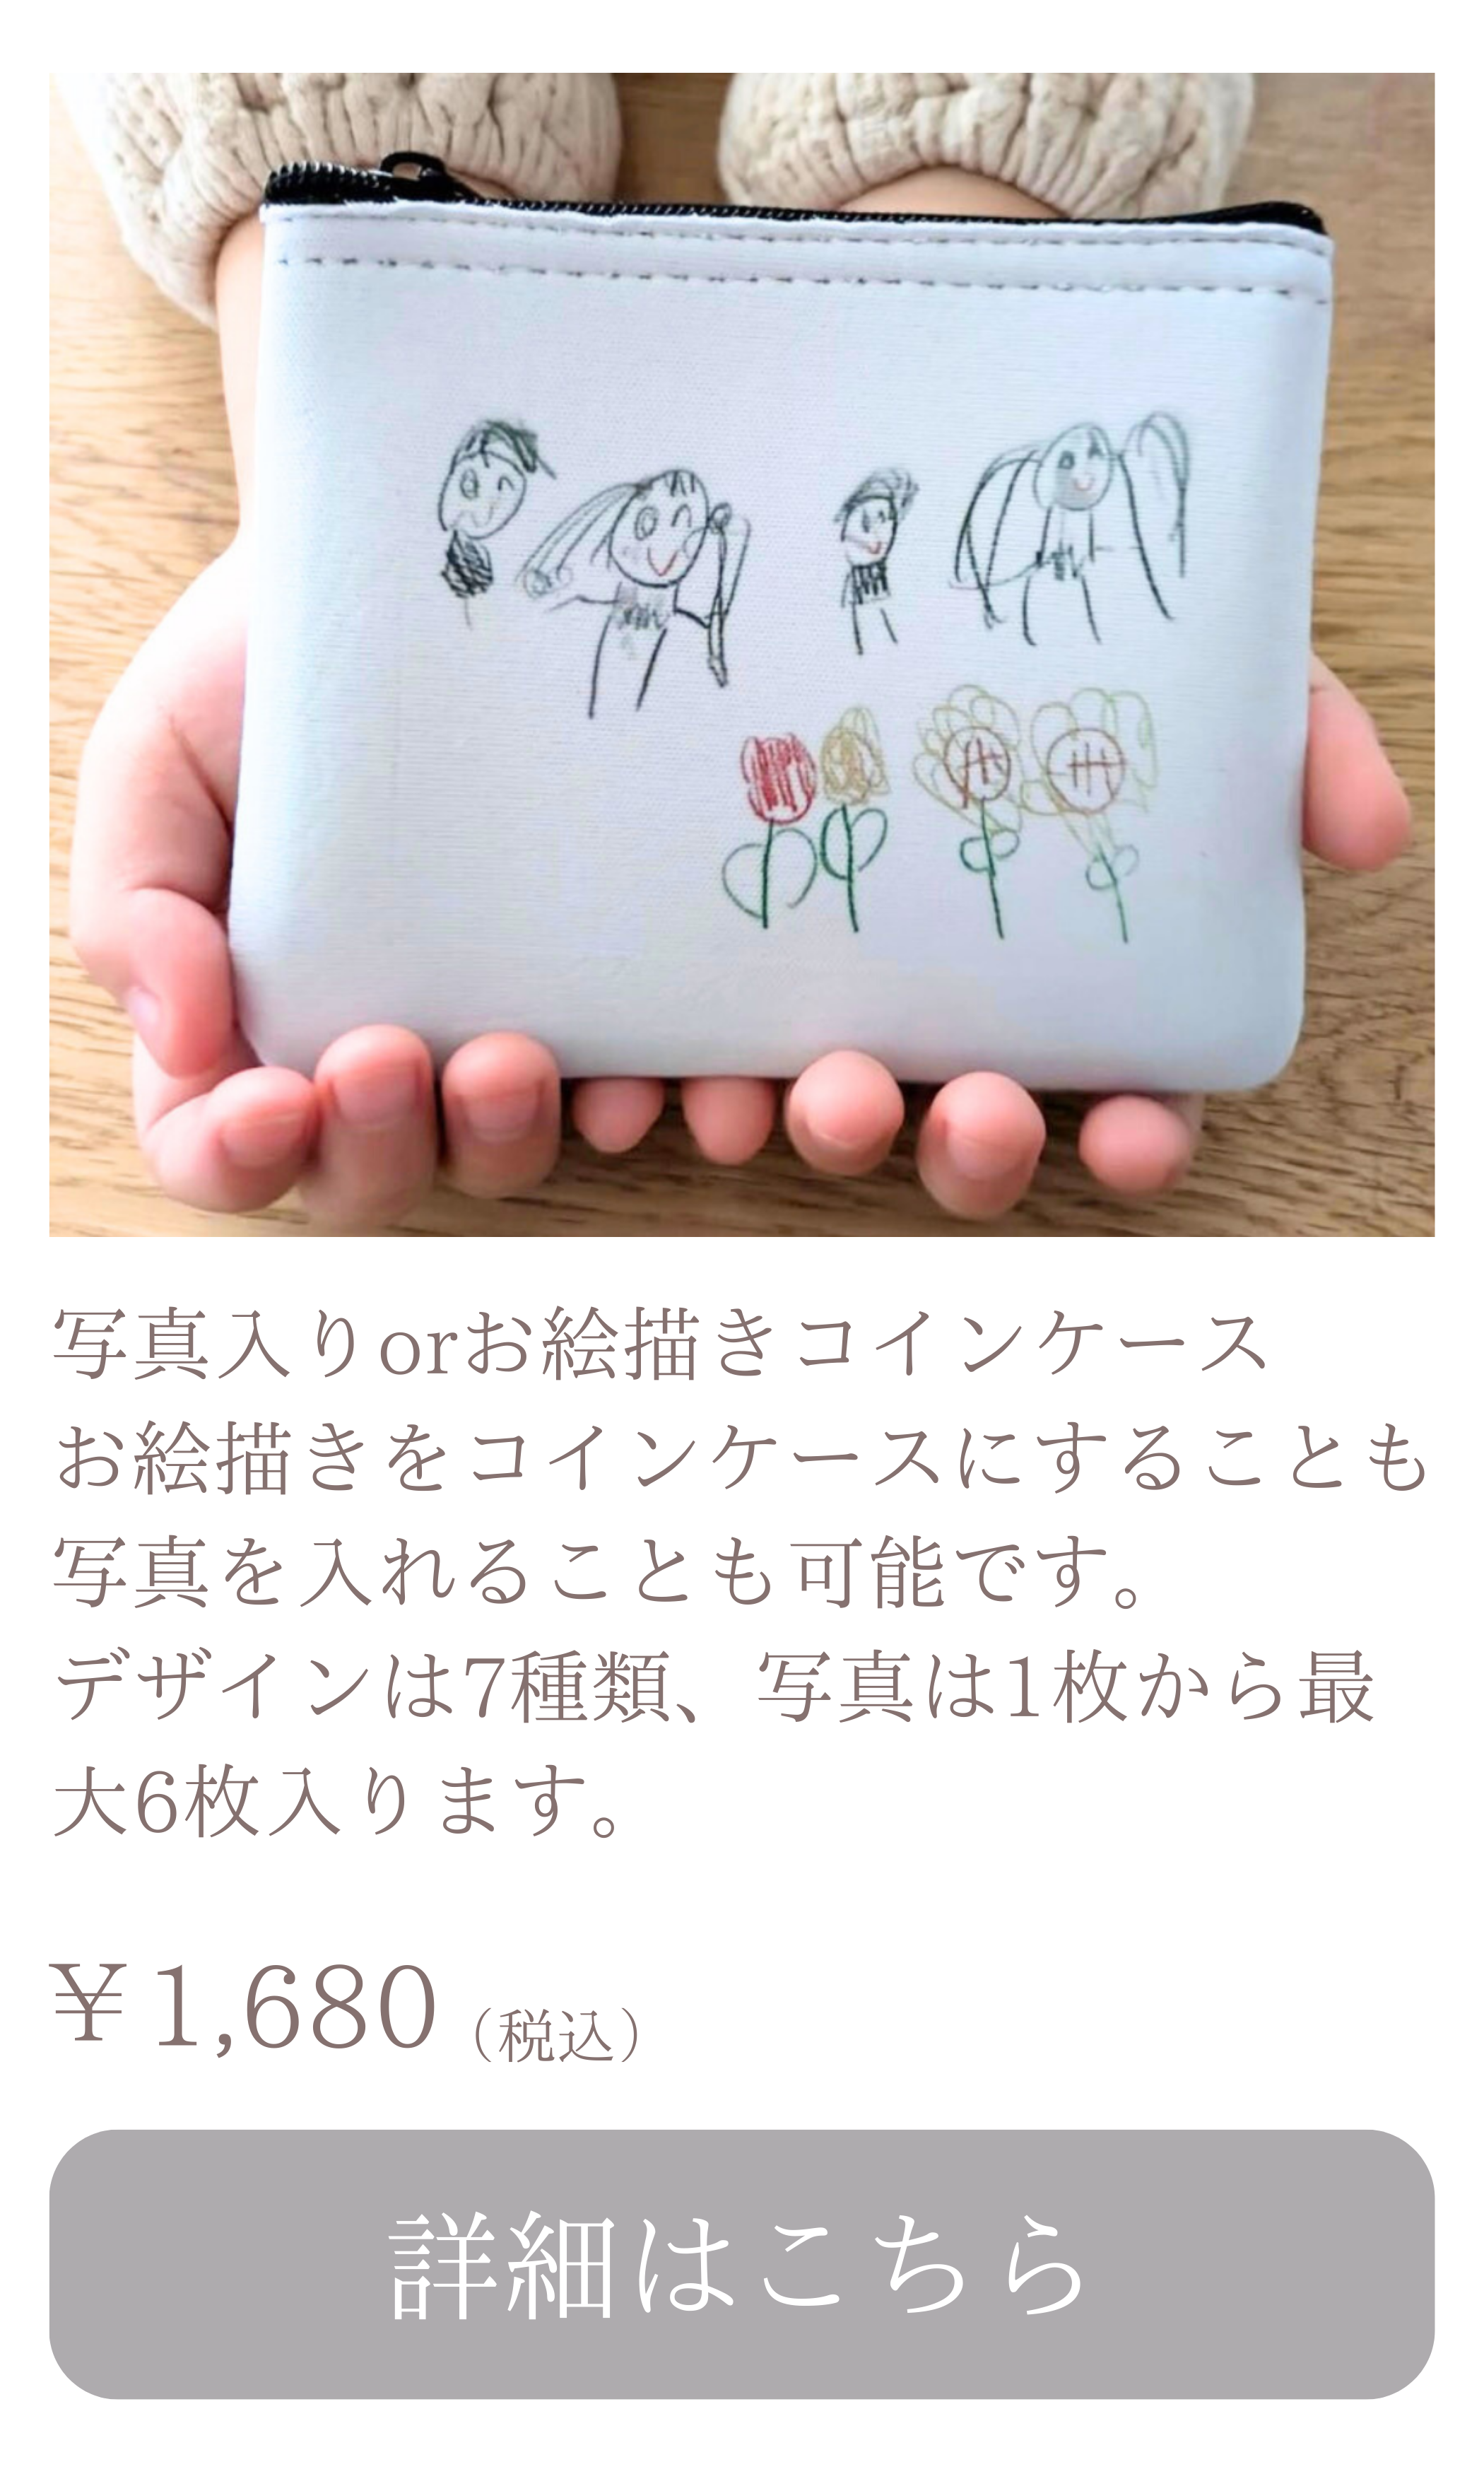 写真入りorお絵描きコインケース
お絵描きをコインケースにすることも
写真を入れることも可能です。
デザインは7種類、写真は1枚から最
大6枚入ります。
￥1,680（税込）
詳細はこちら